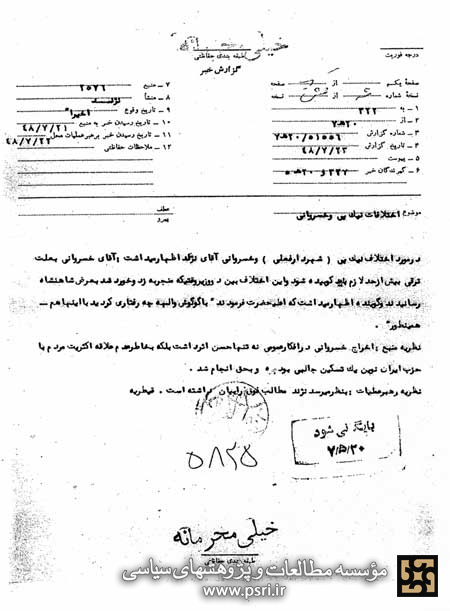 خیلی محرمانه
طبقه بندی حفاظتی
گزارش خبر
درجه فوریت
صفحه یکم از صفحه
نسخه شماره از نسخه
۱ - به ۳۲۲
۲ - از ۲۰ﻫ۷
۳ - شماره گزارش ۲۰/۵۱۵۵۶ﻫ۷
۴ - تاریخ گزارش ۴۸/۷/۲۳
۵ - پیوست
۶ - گیرندگان خبر
۷ - منبع ۲۵۷۶
۸ - منشأ نژند
۹ - تاریخ وقوع اخیرا"
۱۰ - تاریخ رسیدن خبر به منبع ۴۸/۷/۲۱
۱۱ - تاریخ رسیدن خبر به رهبر عملیات محل ۴۸/۷/۲۲
۱۲ - ملاحظات حفاظتی
موضوع اختلافات نیک پی و خسروانی
عطف
پیرو
در مورد اختلاف نیک پی ( شهردار فعلی ) و خسروانی آقای نژند اظهار میداشت ; آقای خسروانی بعلت
ترقی بیش از حد لازم باید کوبیده شود و این اختلاف بین دو وزیر وقتیکه منجر به زد و خورد شد بعرض شاهنشاه
رسانیدند و گوینده اظهار میداشت که اعلیحضرت فرمودند " با گوگوش و الهه چه رفتاری کردید با اینها هم
همینطور".
نظریه منبع : اخراج خسروانی در افکار عمومی نه تنها حسن اثر داشت بلکه بخاطر عدم علاقه اکثریت مردم با
حزب ایران نوین یک تسکین جالبی بوده و بحق انجام شد .
نظریه رهبر عملیات : بنظر میرسد نژند مطالب فوق را بیان داشته است . قیطریه
بایگانی شود
۵۸۲۵
خیلی محرمانه
طبقه بندی حفاظتی
مؤسسه مطالعات و پژوهشهای سیاسی
www.psri.ir